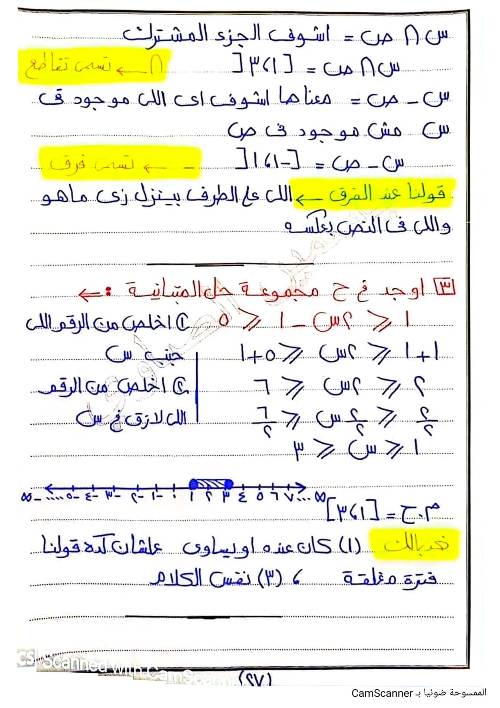 س ∩ ص = اشوف الجزء المشترك
س ∩ ص = [١ ، ٣[ ∩ ← تسمى تقاطع
س - ص = معناها اشوف اى اللى موجود فى
س مش موجود فى ص
س - ص = [-١ ، ١[ - ← تسمى فرق
قولنا عند الفرق ← اللى على الطرف بينزل زى ماهو
واللى فى النص بعكسه
[٣] اوجد فى ح مجموعة حل المتباينة :←
١ ⩽ ٢س - ١ ⩽ ٥ ① اخلص من الرقم اللى
١+١ ⩽ ٢س ⩽ ٥+١ جنب س
٢ ⩽ ٢س ⩽ ٦ ② اخلص من الرقم
٢/٢ ⩽ ٢س/٢ ⩽ ٦/٢ اللى لازق فى س
١ ⩽ س ⩽ ٣
∞- .... ٥- ٤- ٣- ٢- ١- ٠ ١ ٢ ٣ ٤ ٥ ٦ ٧ ... ∞
م.ح = [١ ، ٣]
خد بالك (١) كان عنده او يساوى علشان كده قولنا
فترة مغلقة ، (٣) نفس الكلام
CS Scanned with CamScanner
(٢٧)
الممسوحة ضوئيا بـ CamScanner